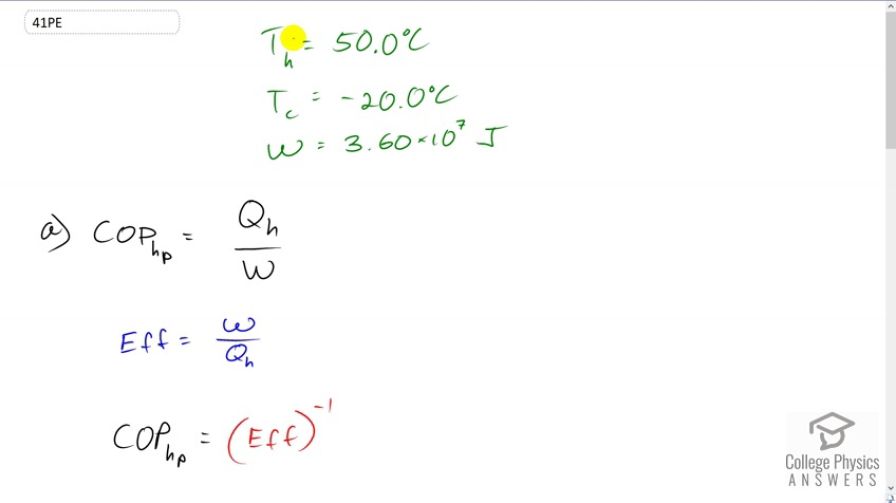 41PE
T_h = 50.0°C
T_c = -20.0°C
W = 3.60×10⁷ J
a) COP_hp = Q_h / W
Eff = W / Q_h
COP_hp = (Eff)⁻¹
College Physics
ANSWERS